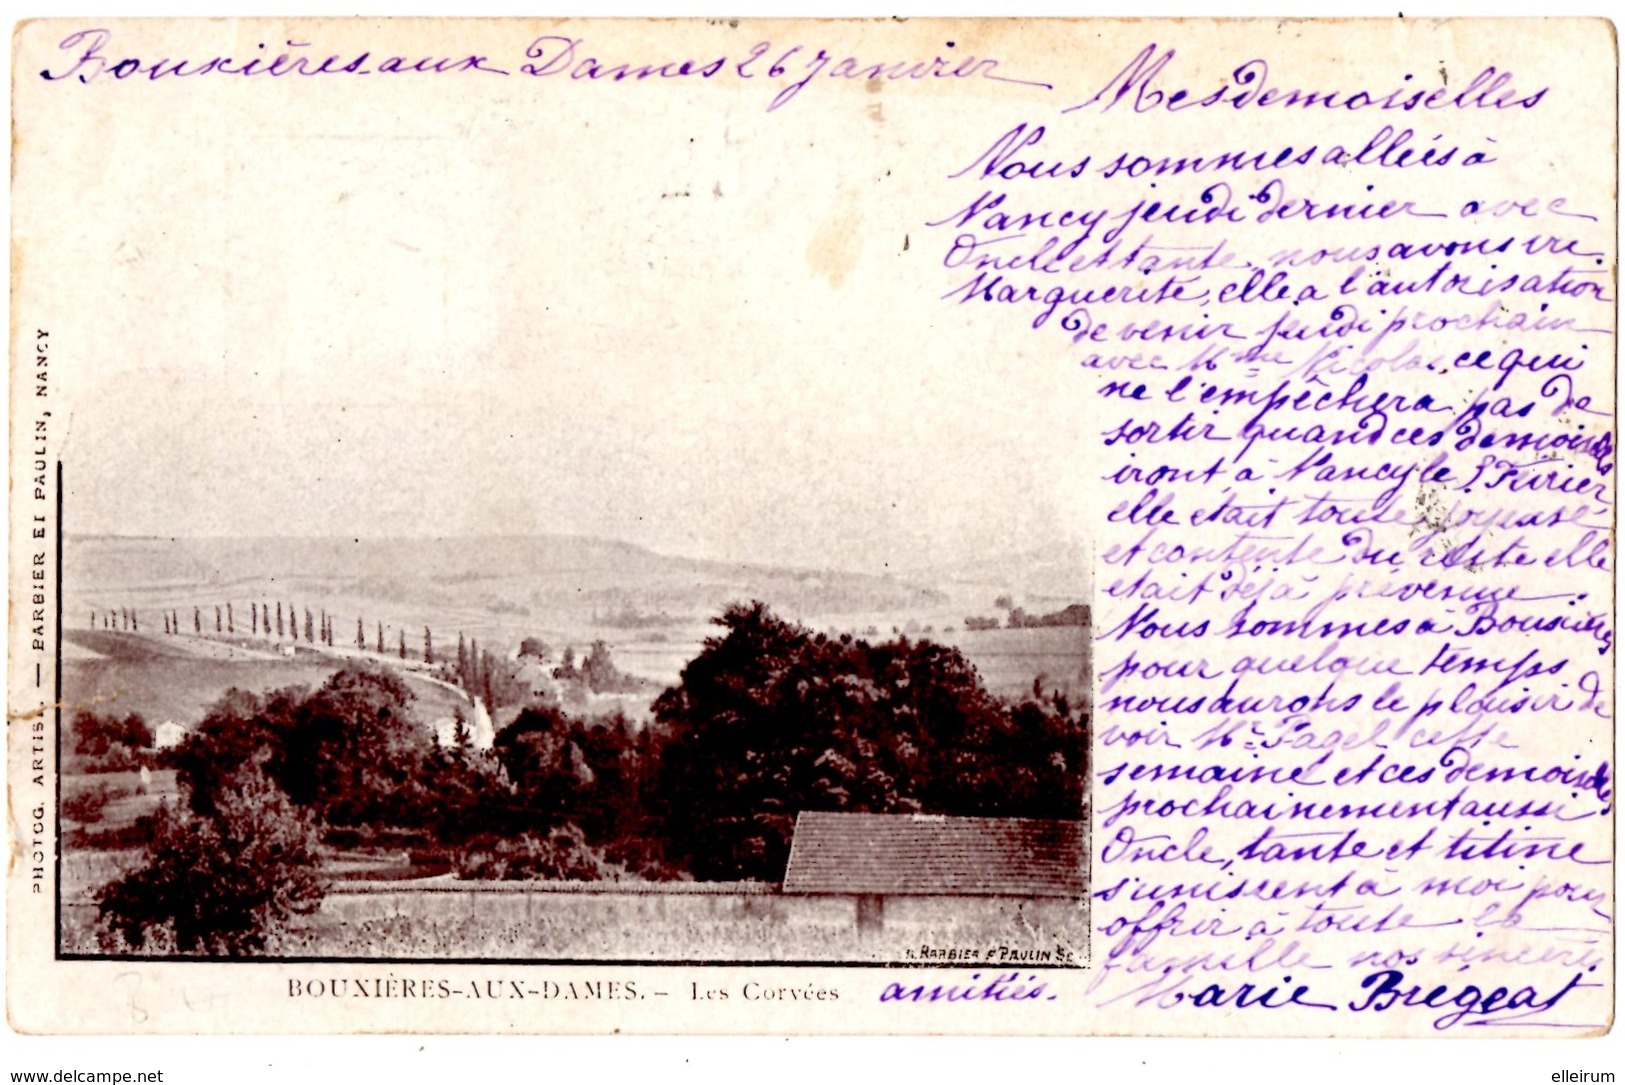 Bouxières-aux Dames 26 Janvier
Mesdemoiselles
Nous sommes allées à
Nancy jeudi dernier avec
Oncle et tante, nous avons vu
Marguerite, elle a l'autorisation
de venir jeudi prochain
avec Mme Nicolas, ce qui
ne l'empêchera pas de
sortir quand ces demoiselles
iront à Nancy le Février
elle était toute
et contente du reste elle
était déjà prévenue.
Nous sommes à Bouxières
pour quelque temps
nous aurons le plaisir de
voir Mr Pagel cette
semaine et ces demoiselles
prochainement aussi
Oncle, tante et titine
s'unissent à moi pour
offrir à toute la
famille nos sincères
amitiés.
Marie Brégeat
PHOTOG. ARTIST. — BARBIER ET PAULIN, NANCY
BARBIER & PAULIN Sc
BOUXIÈRES-AUX-DAMES. - Les Corvées
www.delcampe.net
elleirum